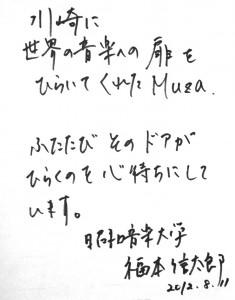 川崎に
世界の音楽への扉を
ひらいてくれたMuza.
ふたたびそのドアが
ひらくのを心待ちにして
います。
昭和音楽大学
福本信太郎
2012.8.11